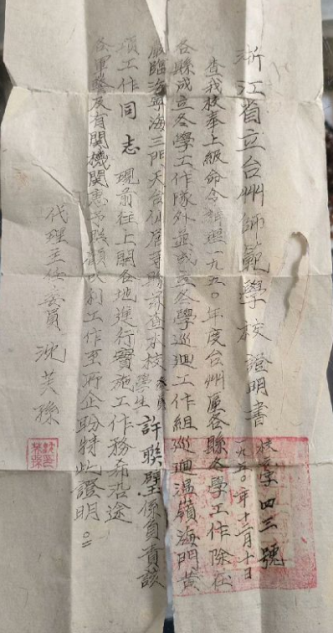 浙江省立台州師範學校證明書
校字四三號
一九五〇年十二月十日
查我校奉上級命令辦理一九五〇年度台州屬各縣冬學工作除在
各縣成立冬學工作隊外並成立冬學巡迴工作組巡迴溫嶺海門黃
臨海寧海三門天台仙居等縣 本校學生許聯璧係負責該
項工作同志現前往上開各地進行實施工作務希沿途
軍警及有關機關惠予 協助工作至所企盼特此證明
代理主任委員沈芙孫